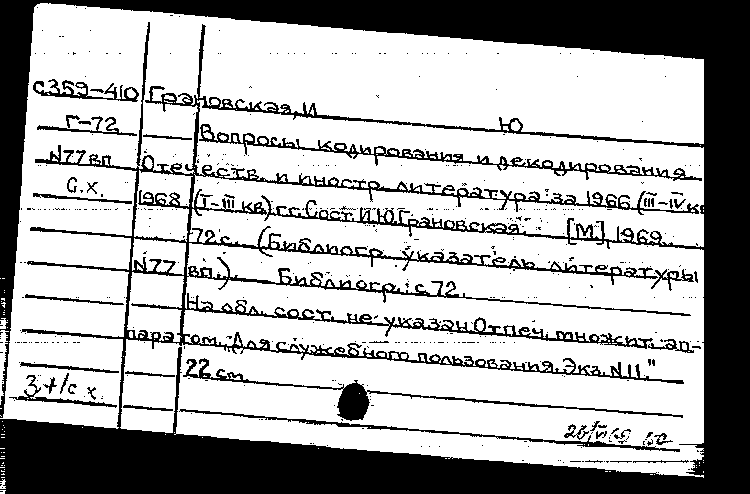 с359-410 Грановская, И
Ю
Г-72 Вопросы кодирования и декодирования.
N77вп Отечеств. и иностр. литература за 1966 (III-IV кв
С.х. 1968 (I-III кв) гг. Сост. И.Ю.Грановская. [М], 1969.
72 с. (Библиогр. указатель литературы
N77 вп.). Библиогр.: с.72.
На обл. сост. не указан. Отпеч. множит. ап-
паратом. „Для служебного пользования. Экз. N11."
22 см.
3 +/с х.